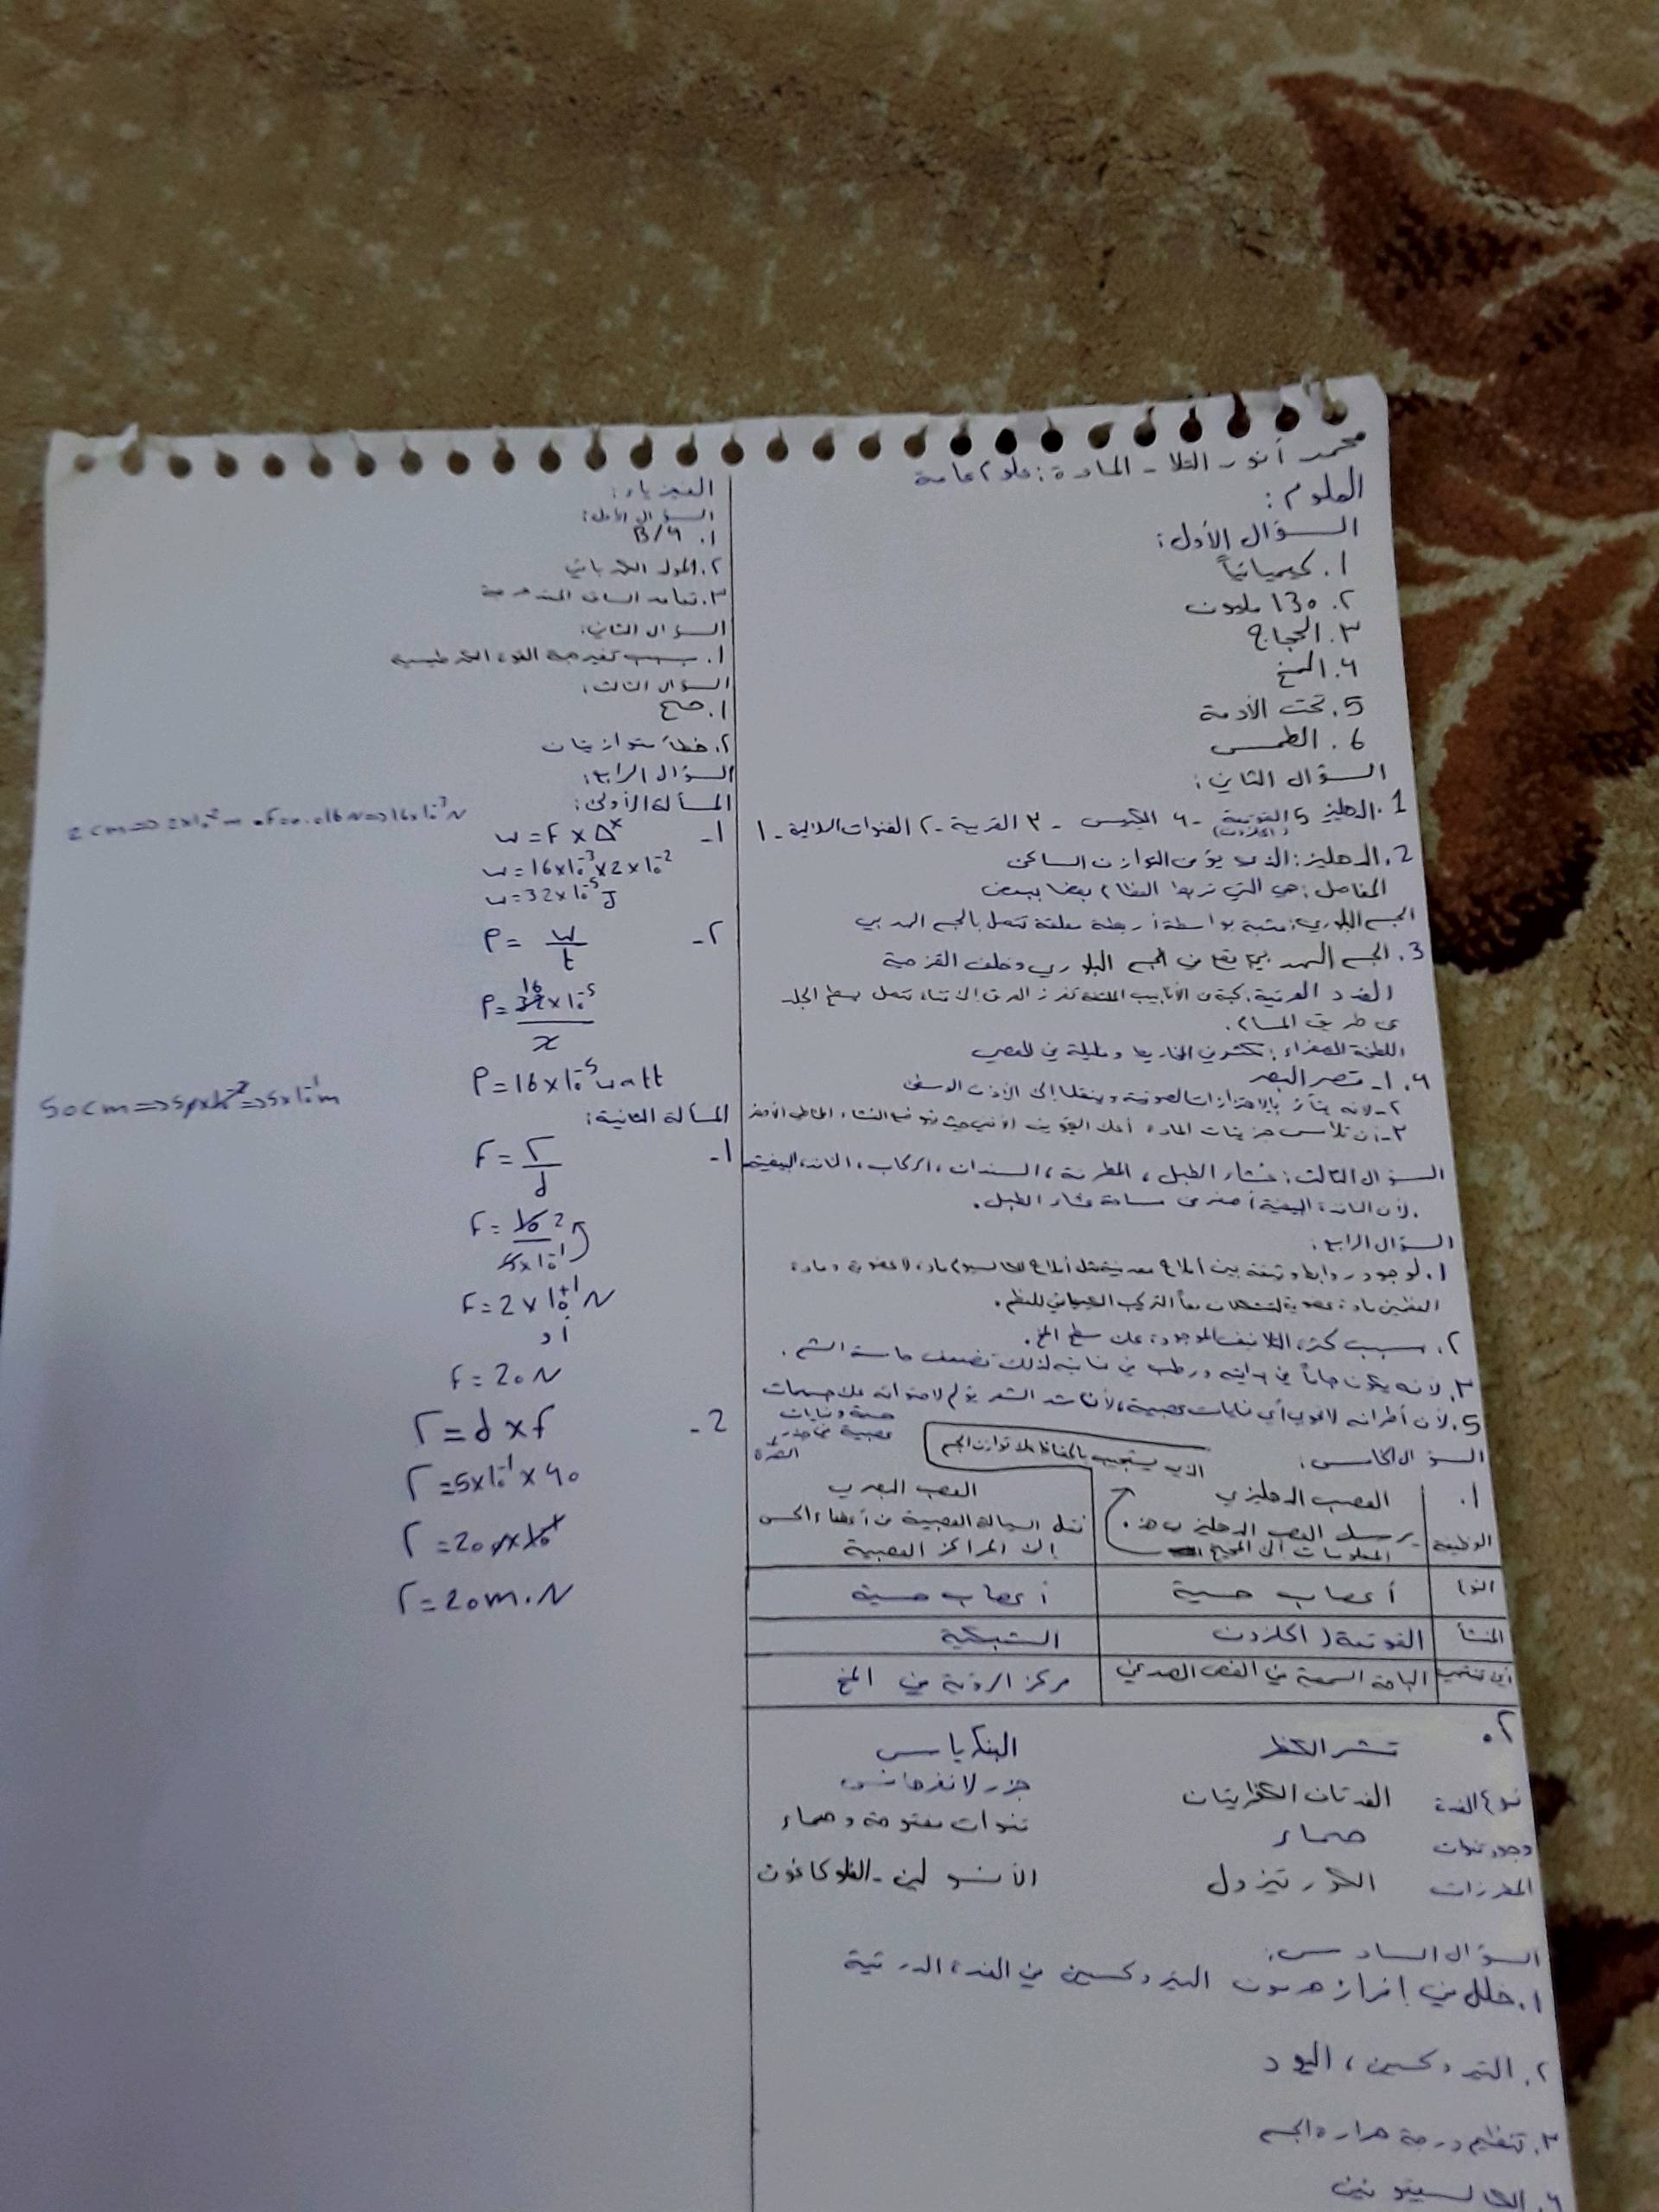 محمد أنور التلا - المادة: علوم عامة
العلوم:
السؤال الأول:
١. كيميائياً
٢. 130 مليون
٣. الحجاج
٤. المخ
5. تحت الأدمة
٦. الطمس
السؤال الثاني:
1. الدهليز 5 القوقعة (الحلزون) -٤ الكييس -٣ القربية -٢ القنوات الهلالية -١
2. الدهليز: الذي يؤمن التوازن الساكن
المفاصل: هي التي تربط العظام بعضا ببعض
الجسم البلوري: مثبتة بواسطة أربطة معلقة تتصل بالجسم الهدبي
3. الجسم الهدبي: يقع من الجسم البلوري وخلف القزحية
الغدد العرقية: كبة من الأنابيب الملتفة تفرز العرق الأقنية تتصل بسطح الجلد
عن طريق المسام.
اللطخة الصفراء: تكثر في المخاريط وقليلة في العصي
٤. ١- قصر البصر
٢- لأنه يتأثر بالاهتزازات الصوتية وينقلها إلى الأذن الوسطى
٣- أن تلامس جزيئات المادة أعلى التجويف الأنفي حيث يوجد فيها الغشاء المخاطي الأصفر
السؤال الثالث: غشاء الطبل، المطرقة، السندان، الركاب، النافذة البيضية
لأن النافذة البيضية أصغر من مساحة غشاء الطبل.
السؤال الرابع:
١. لوجود روابط وثيقة بين أملاح معدنية مثل أملاح الكالسيوم مادة لا عضوية ومادة
العظمين مادة عضوية لتشكلان معاً التركيب الكيميائي للعظم.
٢. بسبب كثرة التلافيف الموجودة على سطح المخ.
٣. لأنه يكون جافاً في بدايته ورطب في نهايته لذلك تضعف حاسة الشم.
5. لأن أطرافه لا تحوي أي نهايات عصبية، لأن شد الشعر يؤلم لاحتوائه على جسيمات
حسية ونهايات
عصبية في جذر
الشعرة
السؤال الخامس:
الذي يستجيب بالحفاظ على توازن الجسم
١. العصب الدهليزي العصب البصري
الوظيفة يرسل العصب الدهليزي هذه المعلومات إلى المخيخ نقل السيالة العصبية من أعضاء الحس
إلى المراكز العصبية
النوع أعصاب حسية أعصاب حسية
المنشأ القوقعة (الحلزون الشبكية
أين تنتهي الباحة السمعية في الفص الصدغي مركز الرؤية في المخ
٢. قشر الكظر البنكرياس
نوع الغدة الغدتان الكظريتان جزر لانغرهانس
وجود قنوات صماء قنوات مفتوحة وصماء
المفرزات الكورتيزول الأنسولين - الغلوكاغون
السؤال السادس:
١. خلل في إفراز هرمون التيروكسين في الغدة الدرقية
٢. التيروكسين، اليود
٣. تنظيم درجة حرارة الجسم
٤. الكالسيتونين
الفيزياء:
السؤال الأول:
١. B/4
٢. المولد الكهربائي
٣. تعامد الساق المتدحرجة
السؤال الثاني:
١. بسبب تغير جهة القوة الكهرطيسية
السؤال الثالث:
١. صح
٢. خطأ متوازيتان
السؤال الرابع:
المسألة الأولى:
2cm => 2x10⁻² m F=0.016N => 16x10⁻³ N
١- W = F x Δx
W = 16x10⁻³ x 2x10⁻²
W = 32x10⁻⁵ J
٢- P = W/t
P = 32x10⁻⁵/2 16
P = 16x10⁻⁵ watt
المسألة الثانية:
50cm => 50x10⁻² => 5x10⁻¹ m
١- F = Γ/d
F = 10/5x10⁻¹ 2
F = 2x10⁺¹ N
أو
F = 20N
2- Γ = d x F
Γ = 5x10⁻¹ x 40
Γ = 200x10⁻¹
Γ = 20m.N